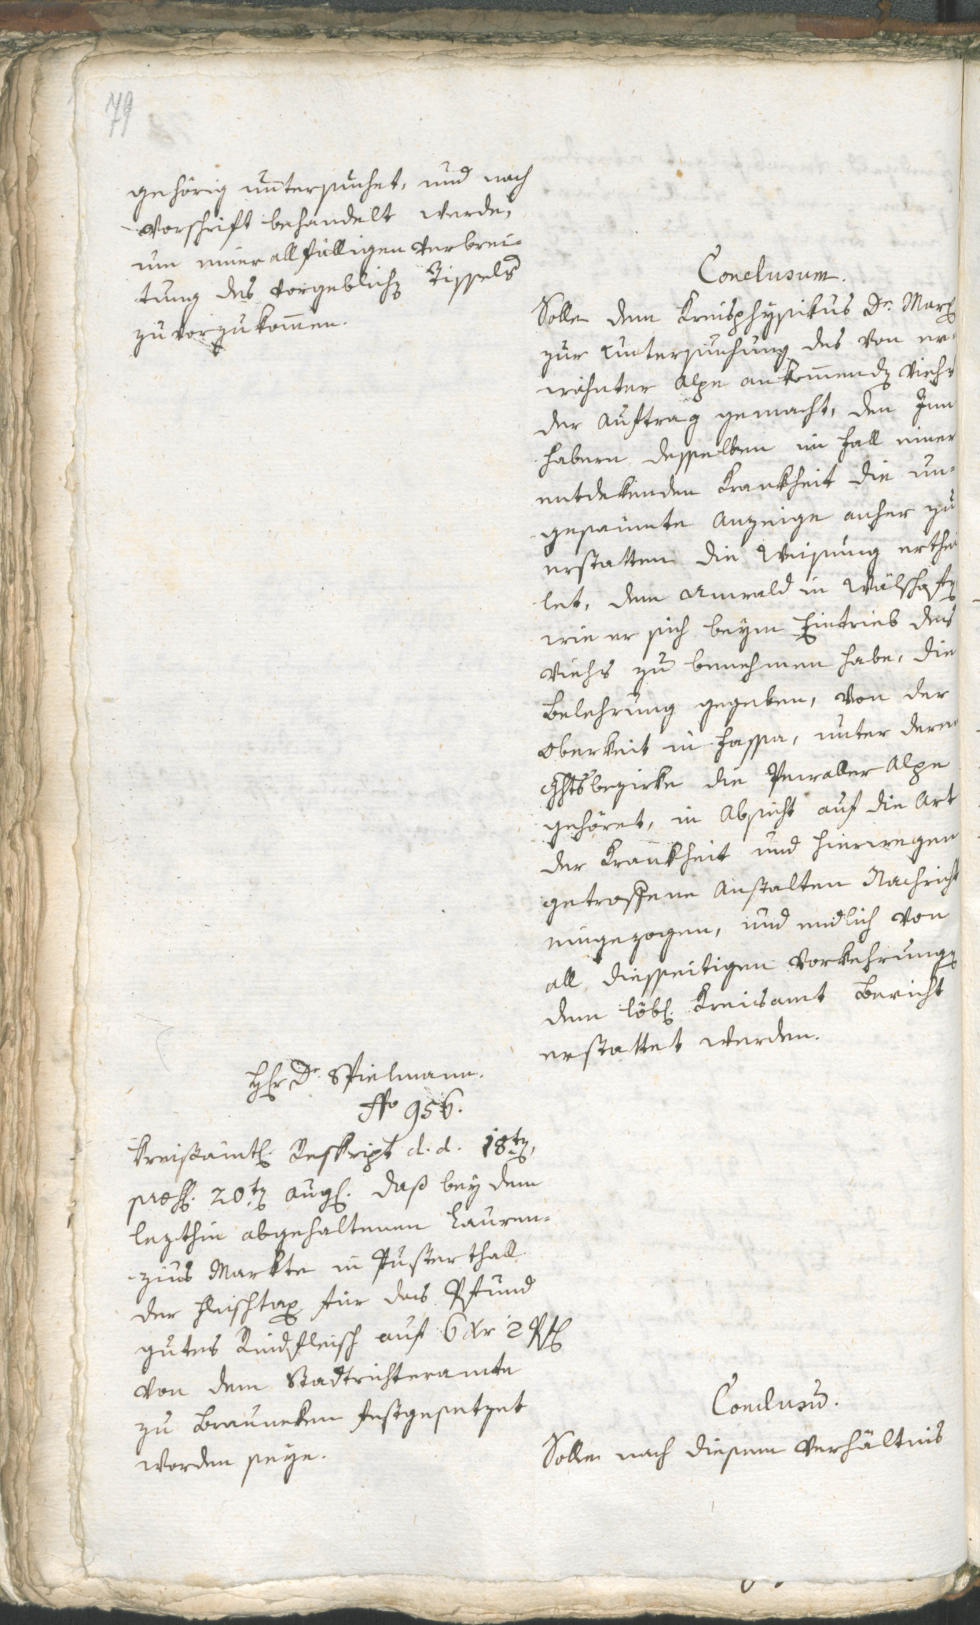 79
gehörig untersuchet, und nach
Vorschrift behandelt werde,
um einer allfälligen Verbrei-
tung des vorgeblichen Zissels
zuvorzukommen.
Conclusum.
Solle dem Kreisphysikus Dr. Marx
zur Untersuchung des von er-
wähnter Alpe ankommenden Viehs
der Auftrag gemacht, den Inn-
habern desselben im Fall einer
entdekenden Krankheit die un-
gesaumte Anzeige anher zu
erstatten die Weisung erthei
let, dem Anwald in Wälschofen
wie er sich beym Eintrieb des
Viehs zu benehmen habe, die
Belehrung gegeben, von der
Oberkeit in Fassa, unter deren
Ghtsbezirke die Alpe
gehöret, in Absicht auf die Art
der Krankheit und hierwegen
getroffene Anstalten Nachricht
eingezogen, und endlich von
all diesseitigen Vorkehrungen
dem löbl. Kreisamt Bericht
erstattet werden.
Hr. Dr. Spielmann.
No 956.
Kreisämtl. Reskript d. d. 18ten,
praes. 20ten aug. daß bey dem
lezthin abgehaltenen Lauren-
zius Markte in Pusterthall
der Fleischtax für das Pfund
gutes Rindfleisch auf 6 Xr 2 Pf
von dem Stadtrichteramte
zu Brauneken festgesetzet
worden seye.
Conclusum.
Solle nach diesem Verhältnis